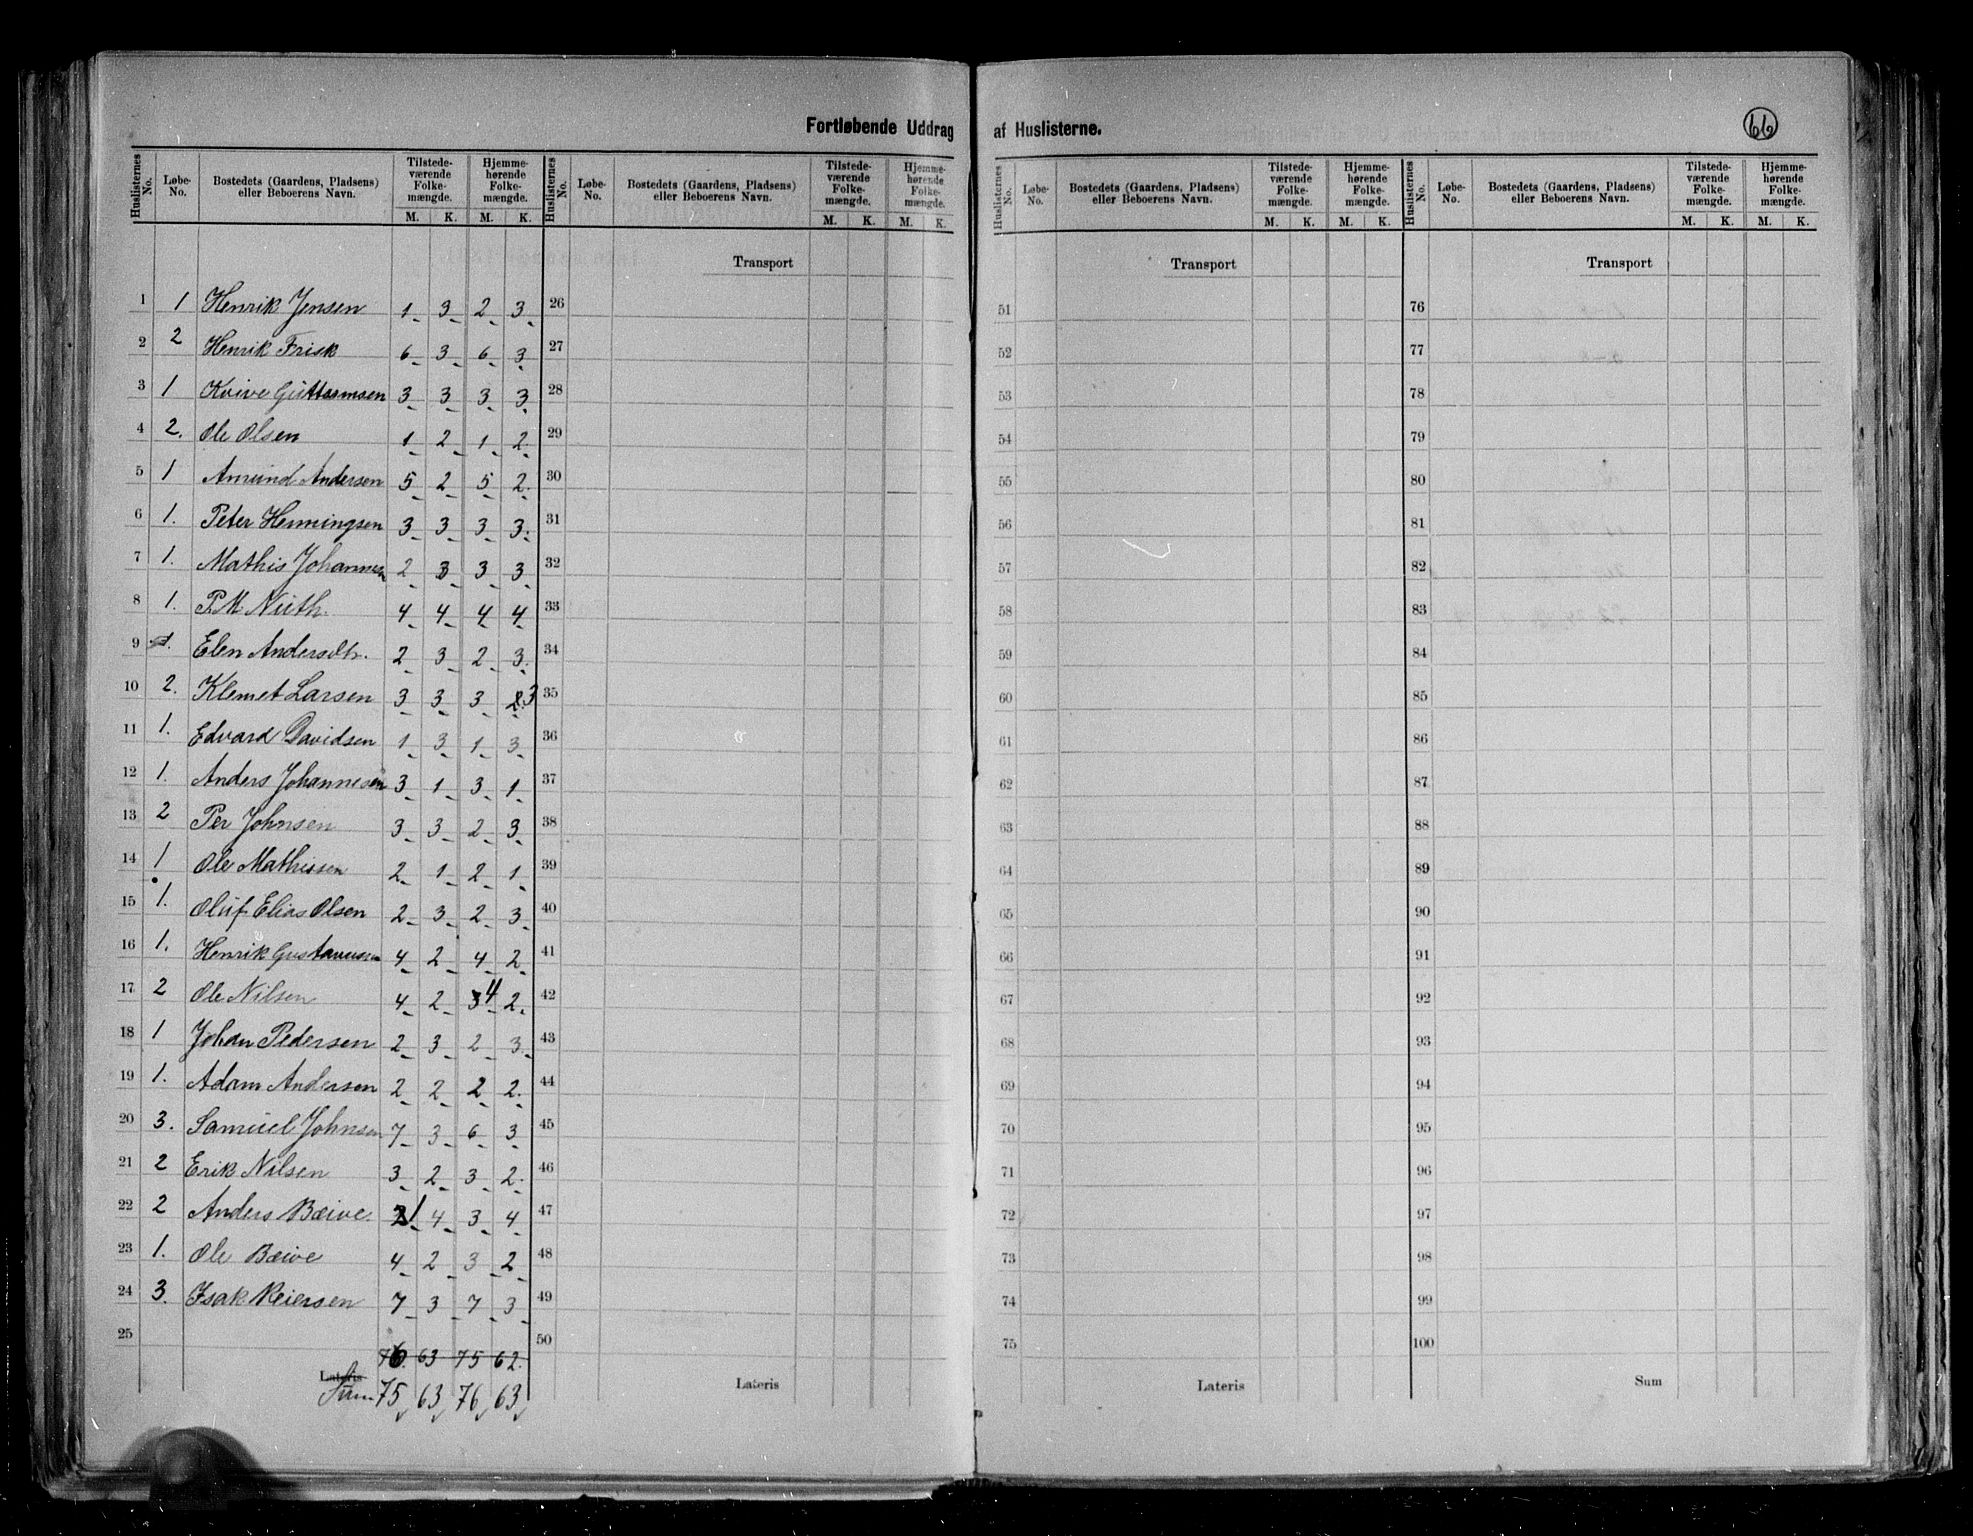 Fortløbende Uddrag af Huslisterne. 66
Huslisternes No. | Løbe-No. | Bostedets (Gaardens, Pladsens) eller Beboerens Navn. | Tilstedeværende Folkemængde. M. K. | Hjemmehørende Folkemængde. M. K.
Huslisternes No. | Løbe-No. | Bostedets (Gaardens, Pladsens) eller Beboerens Navn. | Tilstedeværende Folkemængde. M. K. | Hjemmehørende Folkemængde. M. K.
Huslisternes No. | Løbe-No. | Bostedets (Gaardens, Pladsens) eller Beboerens Navn. | Tilstedeværende Folkemængde. M. K. | Hjemmehørende Folkemængde. M. K.
Huslisternes No. | Løbe-No. | Bostedets (Gaardens, Pladsens) eller Beboerens Navn. | Tilstedeværende Folkemængde. M. K. | Hjemmehørende Folkemængde. M. K.
Transport Transport Transport
1 1 Henrik Jensen 1 3 2 3 26 51 76
2 2 Henrik Frisk 6 3 6 3 27 52 77
3 1 Kvive Guttormsen 3 3 3 3 28 53 78
4 2. Ole Olsen 1 2 1 2 29 54 79
5 1 Amund Andersen 5 2 5 2 30 55 80
6 1. Peter Henningsen 3 3 3 3 31 56 81
7 1. Mathis Johannesen 2 3 3 3 32 57 82
8 1. P. M Nuth. 4 4 4 4 33 58 83
9 1. Elen Andersdtr. 2 3 2 3 34 59 84
10 2. Klemet Larsen 3 3 3 2 3 35 60 85
11 1. Edvard Davidsen 1 3 1 3 36 61 86
12 1. Anders Johannesen 3 1 3 1 37 62 87
13 2 Per Johnsen 3 3 2 3 38 63 88
14 1 Ole Mathissen 2 1 2 1 39 64 89
15 1. Oluf Elias Olsen 2 3 2 3 40 65 90
16 1. Henrik Gustavusen 4 2 4 2 41 66 91
17 2 Ole Nilsen 4 2 3 4 2 42 67 92
18 1 Johan Pedersen 2 3 2 3 43 68 93
19 1. Adam Andersen 2 2 2 2 44 69 94
20 3. Samuel Johnsen 7 3 6 3 45 70 95
21 2 Erik Nilsen 3 2 3 2 46 71 96
22 2 Anders Bæive 1 4 3 4 47 72 97
23 1. Ole Bæive 4 2 3 2 48 73 98
24 3. Isak Reiersen 7 3 7 3 49 74 99
25 76. 63 75 62. 50 75 100
Lateris Lateris Lateris Sum
Sum 75 63 76 63